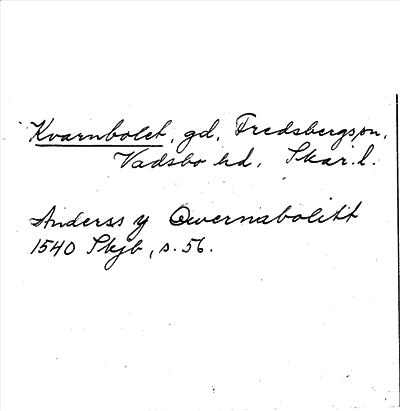 Kvarnbolet, gd, Fredsbergs sn,
Vadsbo hd, Skar. l.
Anderss y Qwernabolitt
1540 Skjb, s. 56.